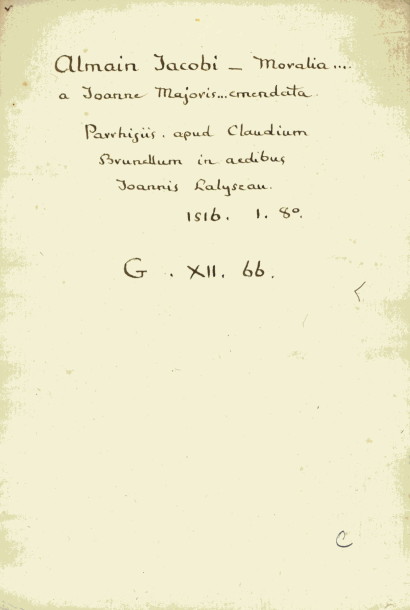 Almain Iacobi – Moralia ...
a Ioanne Majoris...emendata.
Parrhisiis. apud Claudium
Brunellum in aedibus
Ioannis Lalyseau.
1516. 1. 8º.
G. XII. 66.
C